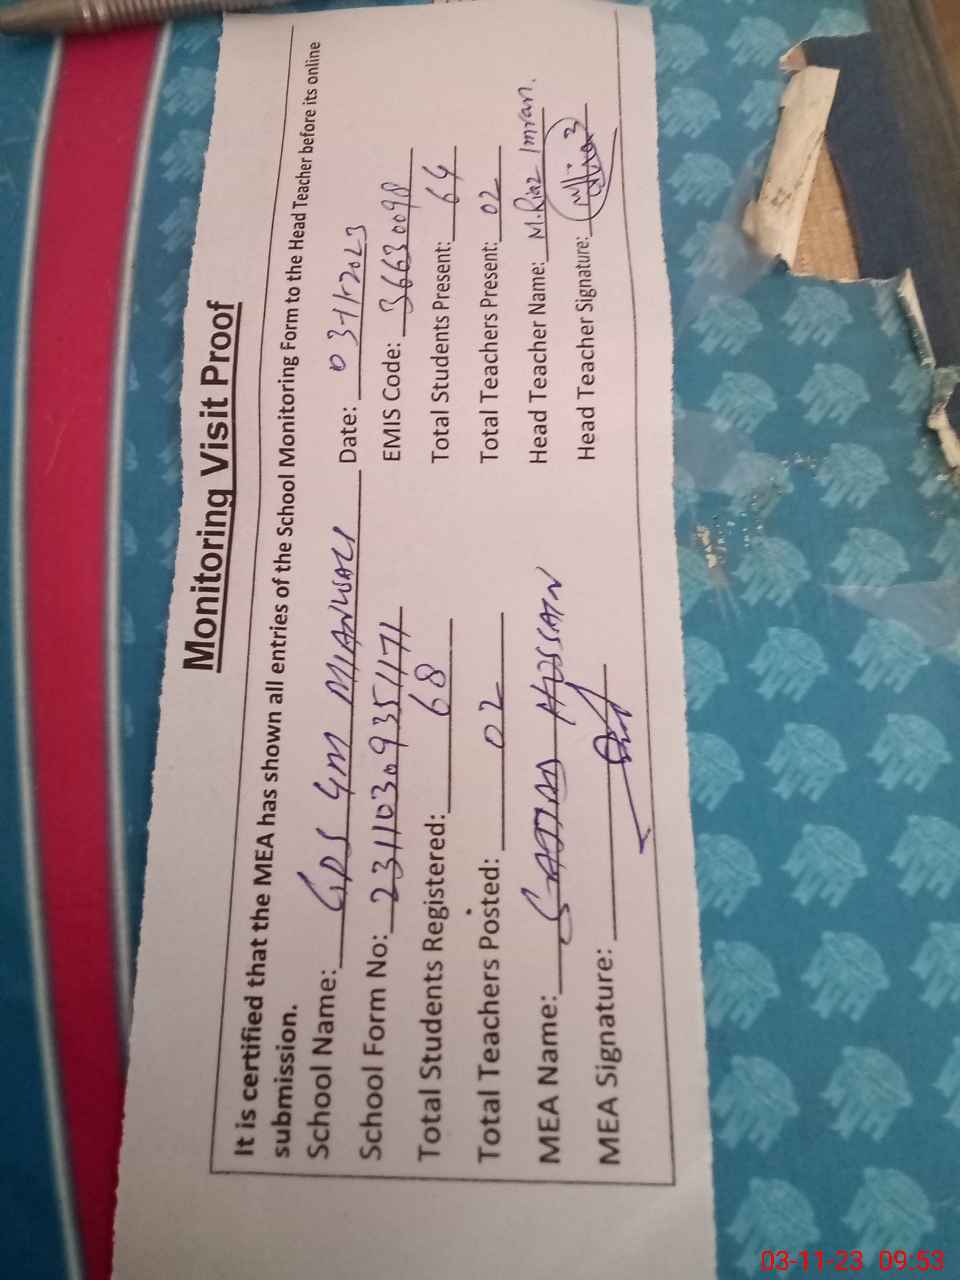 Monitoring Visit Proof
It is certified that the MEA has shown all entries of the School Monitoring Form to the Head Teacher before its online
submission.
School Name: GPS 4M MIANWALI Date: 03-11-2023
School Form No: 231103093517 EMIS Code: 36630098
Total Students Registered: 68 Total Students Present: 64
Total Teachers Posted: 02 Total Teachers Present: 02
MEA Name: SAJJAD HUSSAIN Head Teacher Name: M. Riaz Imran.
MEA Signature: Head Teacher Signature:
03-11-23 09:53